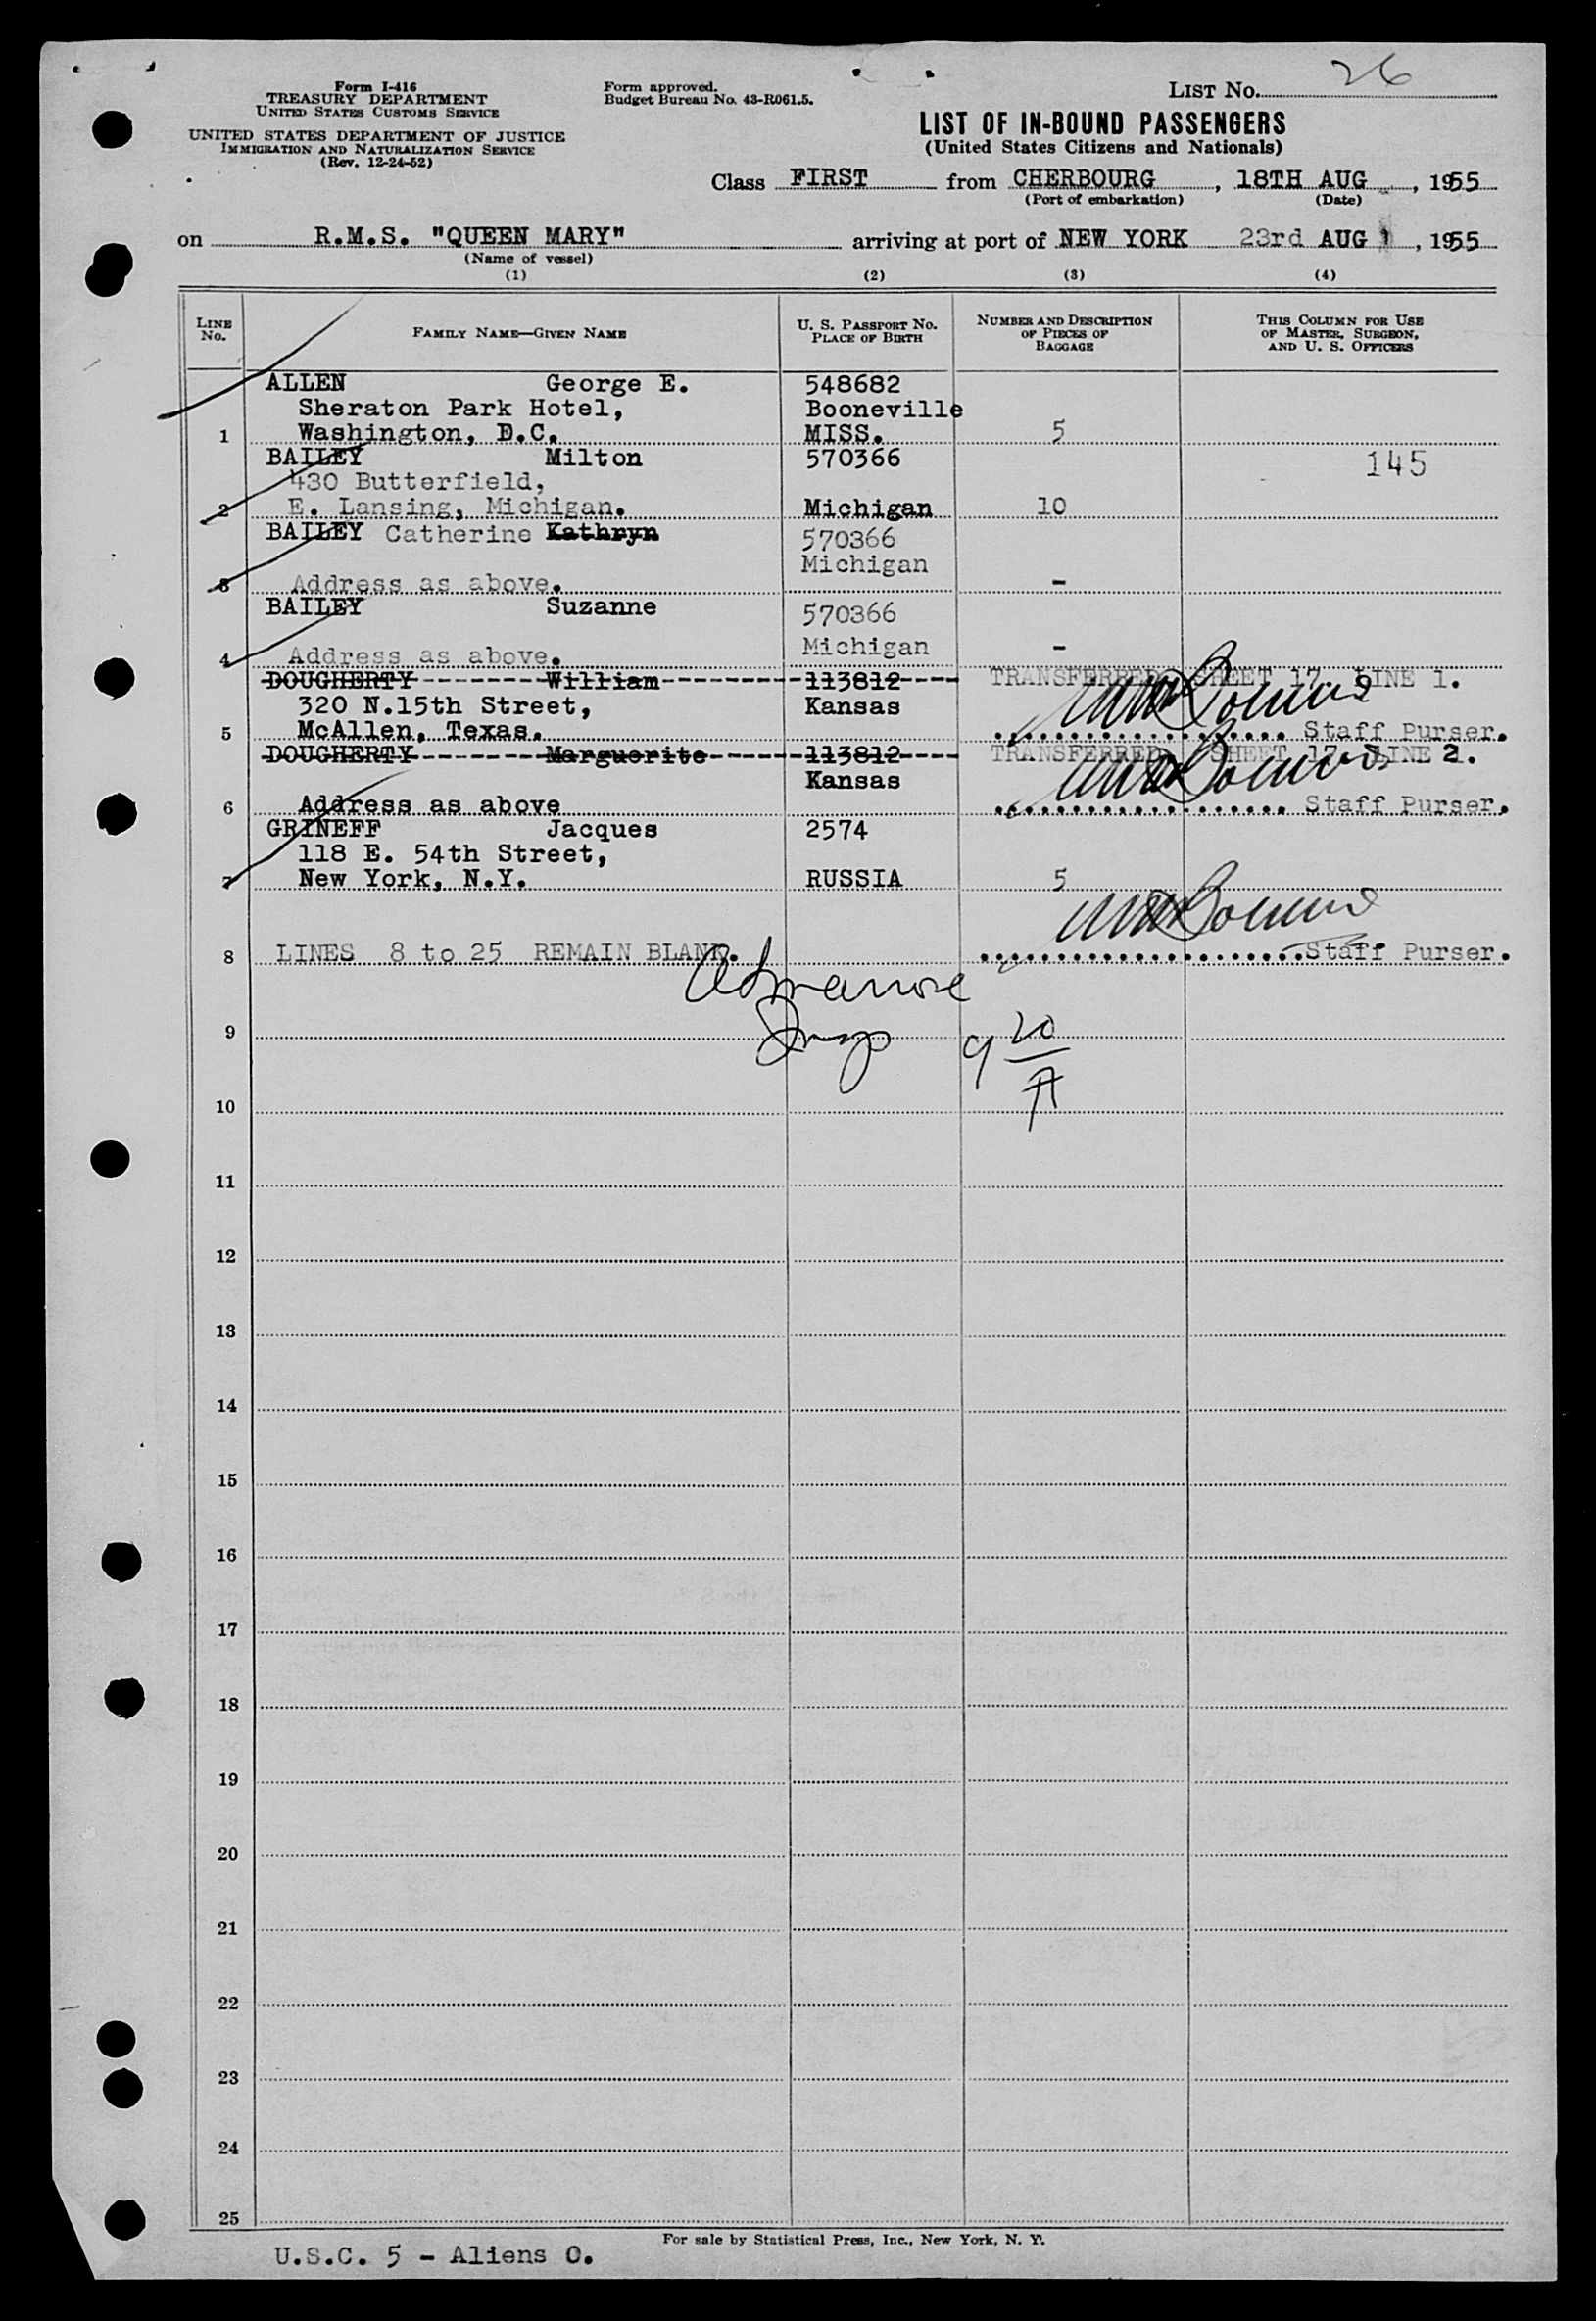 Form I-416
TREASURY DEPARTMENT
UNITED STATES CUSTOMS SERVICE
UNITED STATES DEPARTMENT OF JUSTICE
IMMIGRATION AND NATURALIZATION SERVICE
(Rev. 12-24-52)
Form approved.
Budget Bureau No. 43-R061.5.
LIST NO. 26
LIST OF IN-BOUND PASSENGERS
(United States Citizens and Nationals)
Class FIRST from CHERBOURG, 18TH AUG, 1955
(Port of embarkation) (Date)
on R.M.S. "QUEEN MARY" arriving at port of NEW YORK 23rd AUG, 1955
(Name of vessel)
(1) (2) (3) (4)
LINE NO. FAMILY NAME—GIVEN NAME U. S. PASSPORT NO. PLACE OF BIRTH NUMBER AND DESCRIPTION OF PIECES OF BAGGAGE THIS COLUMN FOR USE OF MASTER, SURGEON, AND U. S. OFFICERS
ALLEN George E. 548682
Sheraton Park Hotel, Booneville
1 Washington, D.C. MISS. 5
BAILEY Milton 570366 145
430 Butterfield,
2 E. Lansing, Michigan. Michigan 10
BAILEY Catherine Kathryn 570366
Michigan
3 Address as above. -
BAILEY Suzanne 570366
Michigan -
4 Address as above.
DOUGHERTY---------William---------113812---- TRANSFERRED SHEET 17 LINE 1.
320 N.15th Street, Kansas
5 McAllen, Texas. Staff Purser.
DOUGHERTY---------Marguerite------113812---- TRANSFERRED SHEET 17 LINE 2.
Kansas
6 Address as above Staff Purser.
GRINEFF Jacques 2574
118 E. 54th Street,
7 New York, N.Y. RUSSIA 5
8 LINES 8 to 25 REMAIN BLANK. Staff Purser.
9
9 20/A
10
11
12
13
14
15
16
17
18
19
20
21
22
23
24
25
For sale by Statistical Press, Inc., New York, N. Y.
U.S.C. 5 - Aliens 0.